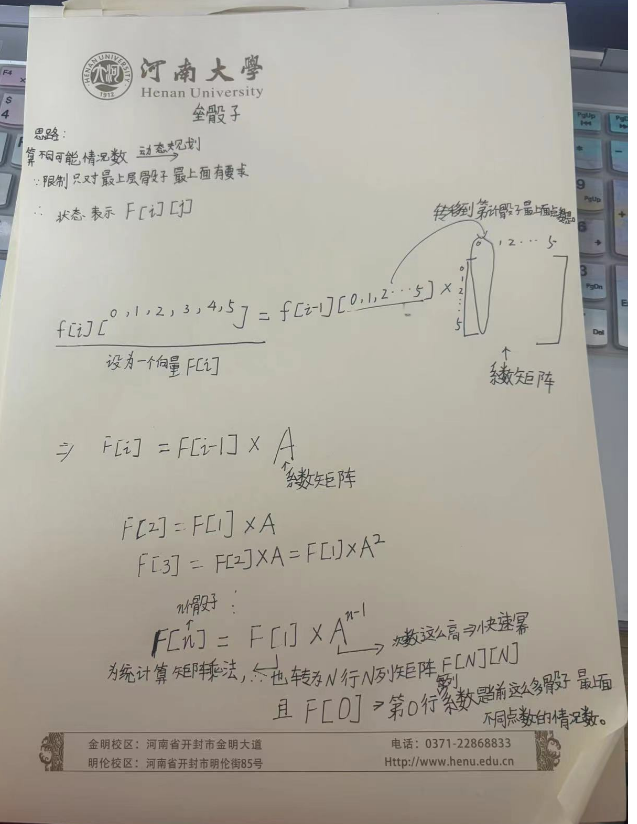 河南大學
Henan University
HENAN UNIVERSITY
1912
垒骰子
思路:
算不同可能情况数 动态规划
∵限制只对最上层骰子最上面有要求
∴ 状态表示 F[i][j]
转移到第i个骰子最上面点数
0 1 2 ... 5
0
1
2
:
5
f[i][0,1,2,3,4,5] = f[i-1][0,1,2...5] ×
设为一个向量F[i]
系数矩阵
⇒ F[i] = F[i-1] × A
系数矩阵
F[2] = F[1] × A
F[3] = F[2] × A = F[1] × A²
n个骰子:
F[n] = F[1] × Aⁿ⁻¹ → 次数这么高⇒快速幂
为统计算矩阵乘法, ∴也转为N行N列矩阵 F[N][N]
且 F[0] ⇒ 第0行系数是当前这么多骰子 最上面
不同点数的情况数。
金明校区：河南省开封市金明大道
电话：0371-22868833
明伦校区：河南省开封市明伦街85号
Http://www.henu.edu.cn
F4
S
4
6
PgDn
Del
End